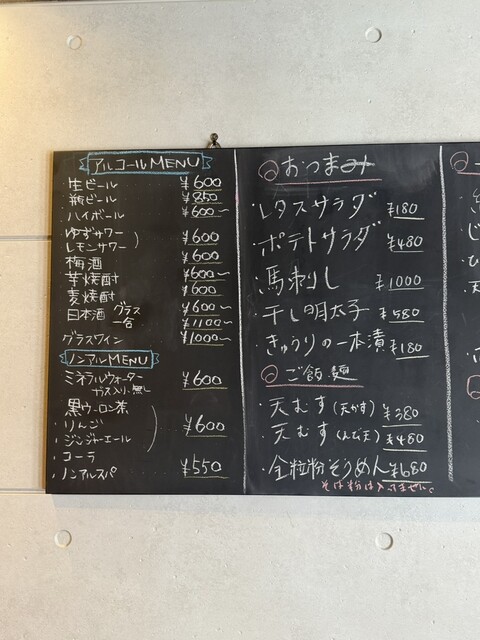 アルコール MENU
生ビール ¥600
瓶ビール ¥850
ハイボール ¥600〜
ゆずサワー
レモンサワー ¥600
梅酒 ¥600
芋焼酎 ¥600〜
麦焼酎 ¥600
日本酒 グラス ¥600〜
一合 ¥1100〜
グラスワイン ¥1000〜
ノンアルMENU
ミネラルウォーター ¥600
ガス入り・無し
黒ウーロン茶
・りんご ¥600
・ジンジャーエール
・コーラ
・ノンアルスパ ¥550
おつまみ
・レタスサラダ ¥180
・ポテトサラダ ¥480
・馬刺し ¥1000
・干し明太子 ¥580
・きゅうりの一本漬 ¥180
ご飯・麺
・天むす(天かす) ¥380
・天むす(えび天) ¥480
・全粒粉そうめん ¥680
そば粉は入ってません。